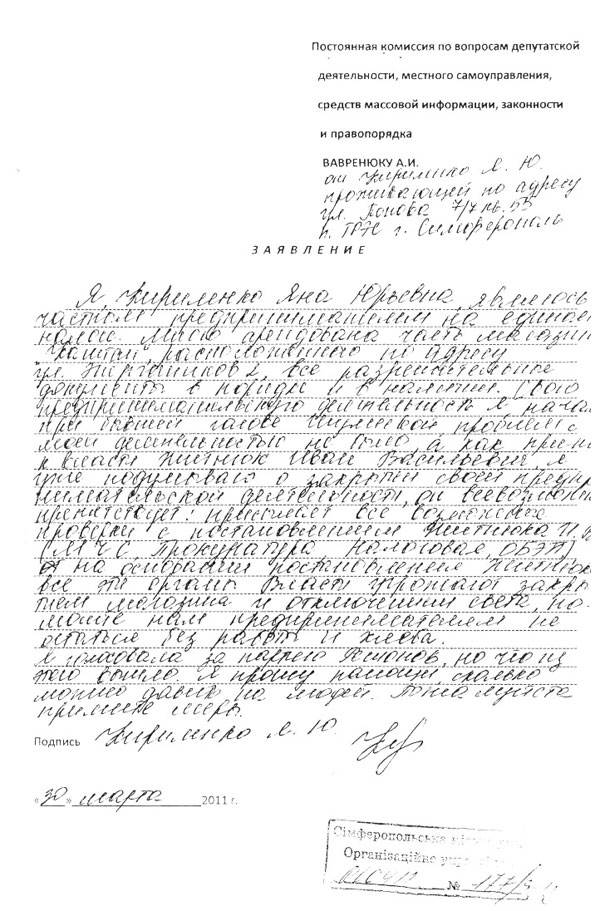 Постоянная комиссия по вопросам депутатской
деятельности, местного самоуправления,
средств массовой информации, законности
и правопорядка
ВАВРЕНЮКУ А.И.
от Кириленко Я. Ю.
проживающей по адресу
ул. Попова 7/7 кв. 55
п. ГРЭС г. Симферополь
ЗАЯВЛЕНИЕ
Я, Кириленко Яна Юрьевна, являюсь
частным предпринимателем на едином
налоге. Мною арендована часть магазин
Каштан, расположенного по адресу
ул. 2, все разрешительные
документы в порядке и в наличии. Свою
предпринимательскую деятельность я нача
при бывшей главе проблем с
моей деятельностью не было а как при
к власти Житнюк Иван Васильевич я
уже подумываю о закрытии своей предпр
нимательской деятельности, он всевозможн
препятствует: присылает все возможные
проверки с постановлением Житнюка И. В
(МЧС, Прокуратура Налоговая, ОБЭП)
от на основании постановлением Житнюк
все эти органы Власти угрожают закры
тием магазина и отключением света, по
могите нам предпринимателям не
остаться без работы и хлеба.
Я голосовала за партию Регионов, но что из
этого вышло. Я прошу помощи, сколько
можно давить на людей. Пожалуйста
примите меры.
Подпись Кириленко Я. Ю.
«30» марта 2011 г.
Сімферопольська
Організаційне
№ 177/